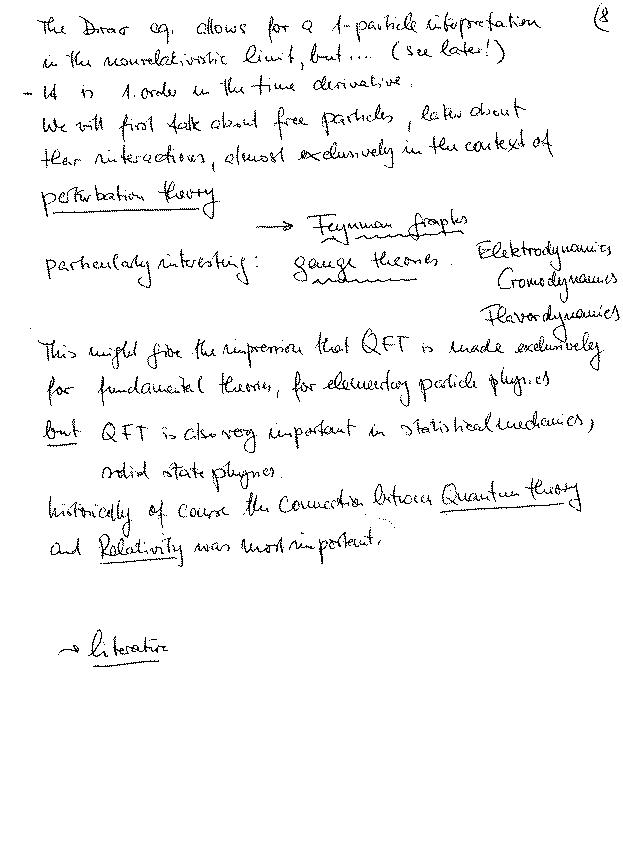 (8
The Dirac eq. allows for a 1-particle interpretation
in the nonrelativistic limit, but... (see later!)
- It is 1. order in the time derivative.
We will first talk about free particles, later about
their interactions, almost exclusively in the context of
perturbation theory
→ Feynman graphs
particularly interesting: gauge theories. Elektrodynamics
Cromodynamics
Flavordynamics
This might give the impression that QFT is made exclusively
for fundamental theories, for elementary particle physics
but QFT is also very important in statistical mechanics,
solid state physics.
historically of course the connection between Quantum theory
and Relativity was most important.
→ literature